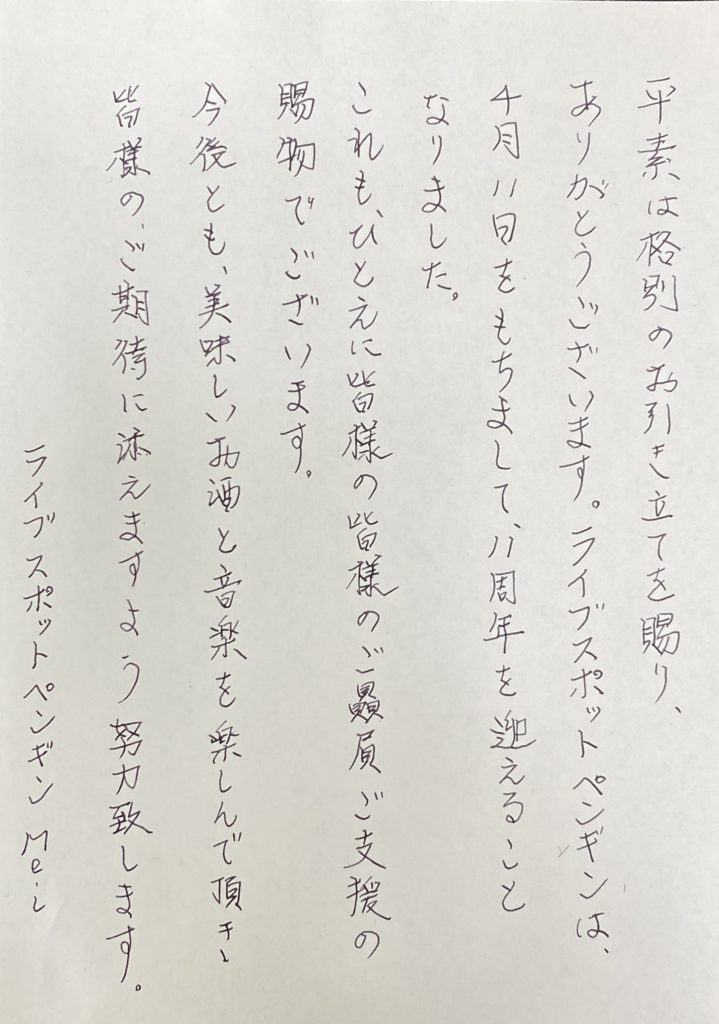 平素は格別のお引き立てを賜り、
ありがとうございます。ライブスポットペンギンは、
4月11日をもちまして、11周年を迎えること
なりました。
これも、ひとえに皆様の皆様のご贔屓ご支援の
賜物でございます。
今後とも、美味しいお酒と音楽を楽しんで頂き、
皆様の、ご期待に添えますよう努力致します。
ライブスポットペンギン Mei